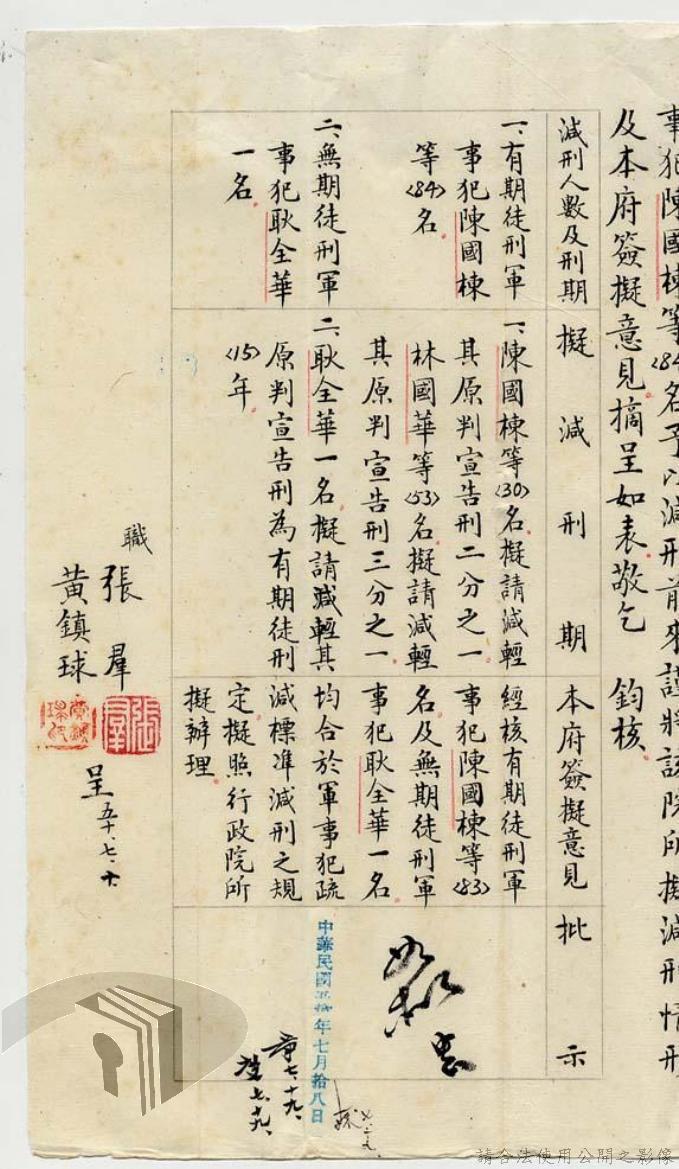 事犯陳國棟等<84>名予以減刑前來謹將該院所擬減刑情形
及本府簽擬意見摘呈如表敬乞　鈞核
減刑人數及刑期
擬減刑期
本府簽擬意見
批示
一、有期徒刑軍
事犯陳國棟
等<84>名。
二、無期徒刑軍
事犯耿全華
一名。
一、陳國棟等<30>名擬請減輕
其原判宣告刑二分之一。
林國華等<53>名擬請減輕
其原判宣告刑三分之一。
二、耿全華一名擬請減輕其
原判宣告刑為有期徒刑
<15>年。
經核有期徒刑軍
事犯陳國棟等<83>
名及無期徒刑軍
事犯耿全華一名。
均合於軍事犯疏
減標準減刑之規
定擬照行政院所
擬辦理。
如擬
中華民國五拾年七月拾八日
職
張羣
黃鎮球
呈五十、七、十、
請合法使用公開之影像